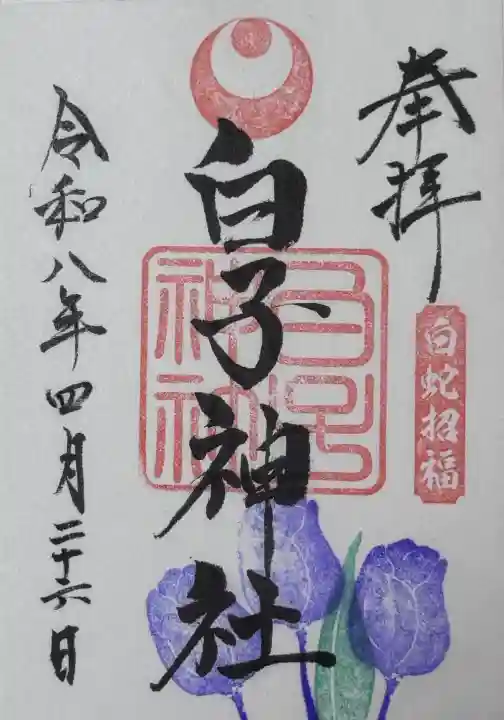 奉拝
白蛇招福
白子神社
白子神社
令和八年四月二十六日